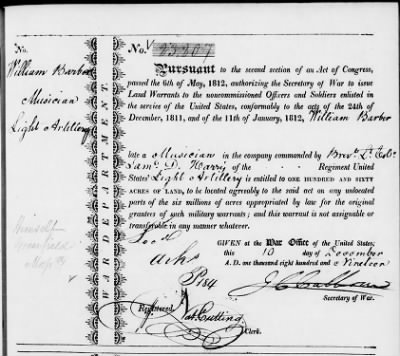 No.
William Barber
Musician
Light Artillery
Himself
WAR DEPARTMENT.
No. 23207
Pursuant to the second section of an Act of Congress,
passed the 6th of May, 1812, authorizing the Secretary of War to issue
Land Warrants to the noncommissioned Officers and Soldiers enlisted in
the service of the United States, conformably to the acts of the 24th of
December, 1811, and of the 11th of January, 1812, William Barber
late a Musician in the company commanded by Brevt. Lt. Col.
Saml. D. Harris of the Regiment United
States' Light Artillery is entitled to ONE HUNDRED AND SIXTY
ACRES OF LAND, to be located agreeably to the said act on any unlocated
parts of the six millions of acres appropriated by law for the original
grantees of such military warrants; and this warrant is not assignable or
transferable in any manner whatever.
GIVEN at the War Office of the United States,
this 10 day of December
A. D. one thousand eight hundred and Nineteen
J C Calhoun
Secretary of War.
Registered.
Nat. Cutting
Clerk.